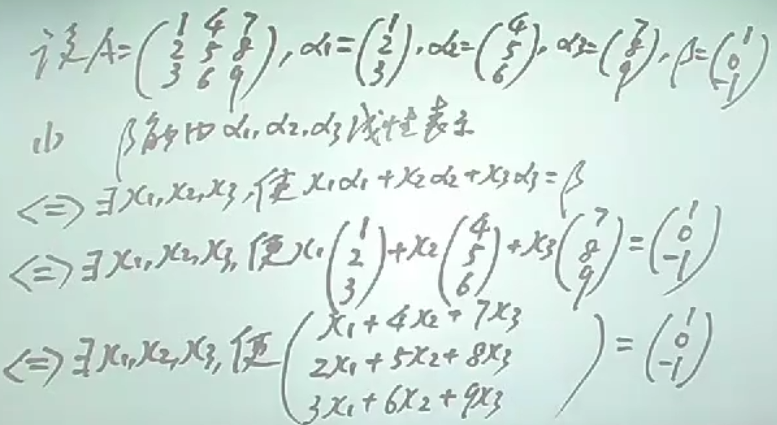 设A=(1 4 7
2 5 8
3 6 9), α₁=(1
2
3), α₂=(4
5
6), α₃=(7
8
9), β=(1
0
-1)
(1) β能由α₁,α₂,α₃线性表示
<=> ∃x₁,x₂,x₃,使x₁α₁+x₂α₂+x₃α₃=β
<=> ∃x₁,x₂,x₃,使x₁(1
2
3)+x₂(4
5
6)+x₃(7
8
9)=(1
0
-1)
<=> ∃x₁,x₂,x₃,使(x₁+4x₂+7x₃
2x₁+5x₂+8x₃
3x₁+6x₂+9x₃)=(1
0
-1)